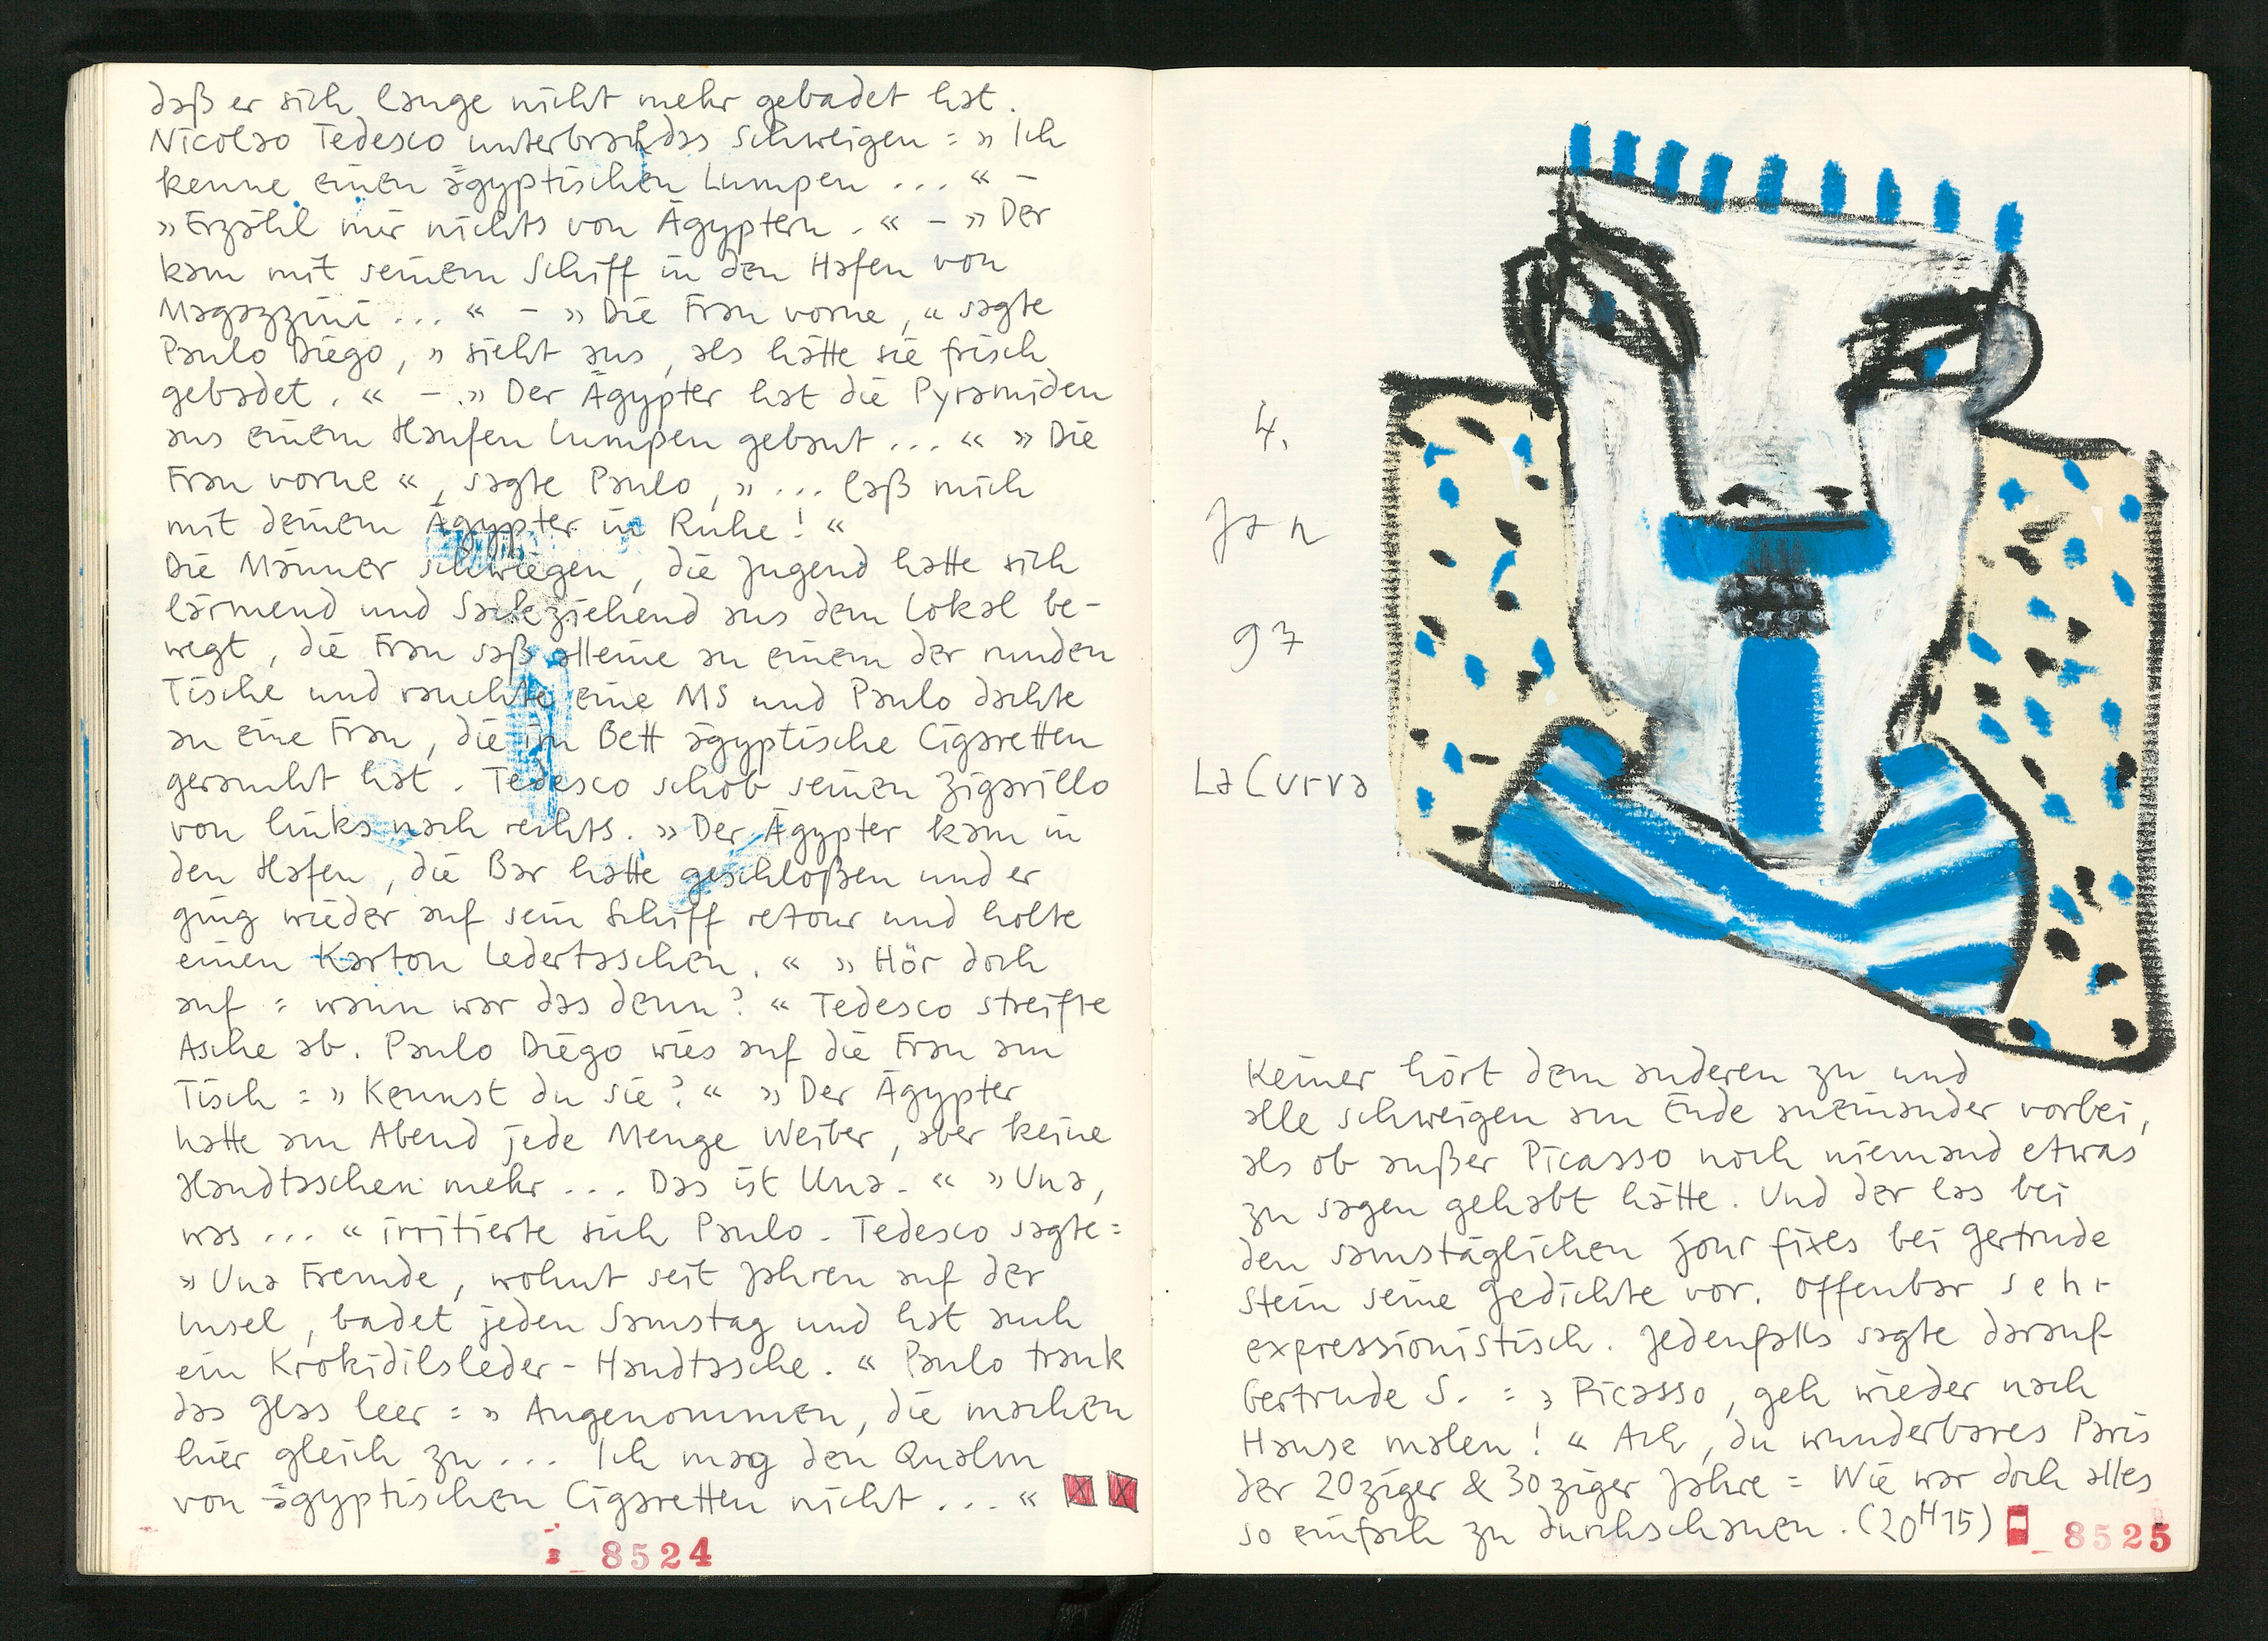 daß er sich lange nicht mehr gebadet hat.
Nicolao Tedesco unterbrach das Schweigen = » Ich
kenne einen ägyptischen Lumpen ... « –
» Erzähl mir nichts von Ägyptern. « – » Der
kam mit seinem Schiff in den Hafen von
Magazzini ... « – » Die Frau vorne, « sagte
Paulo Diego, » sieht aus, als hätte sie frisch
gebadet. « – » Der Ägypter hat die Pyramiden
aus einem Haufen Lumpen gebaut ... « » Die
Frau vorne «, sagte Paulo, » ... laß mich
mit deinem Ägypter in Ruhe! «
Die Männer schwiegen, die Jugend hatte sich
lärmend und Sackeziehend aus dem Lokal be-
wegt, die Frau saß alleine an einem der runden
Tische und rauchte eine MS und Paulo dachte
an eine Frau, die im Bett ägyptische Cigaretten
geraucht hat. Tedesco schob seinen Zigarillo
von links nach rechts. » Der Ägypter kam in
den Hafen, die Bar hatte geschloßen und er
ging wieder auf sein Schiff retour und holte
einen Karton Ledertaschen. « » Hör doch
auf = wann war das denn? « Tedesco streifte
Asche ab. Paulo Diego wies auf die Frau am
Tisch = » Kennst du sie? « » Der Ägypter
hatte am Abend jede Menge Weiber, aber keine
Handtaschen mehr ... Das ist Una. « » Una,
was ... « irritierte sich Paulo. Tedesco sagte =
» Una Fremde, wohnt seit Jahren auf der
Insel, badet jeden Samstag und hat auch
ein Krokidilsleder-Handtasche. « Paulo trank
das Glas leer = » Angenommen, die machen
hier gleich zu ... Ich mag den Qualm
von ägyptischen Cigaretten nicht ... «
8524
4.
Jan
97
La Curva
Keiner hört dem anderen zu und
alle schweigen am Ende aneinander vorbei,
als ob außer Picasso noch niemand etwas
zu sagen gehabt hätte. Und der las bei
den samstäglichen Jour fixes bei Gertrude
Stein seine Gedichte vor. Offenbar sehr
expressionistisch. Jedenfalls sagte darauf
Gertrude S. = » Picasso, geh wieder nach
Hause malen! « Ach, du wunderbares Paris
der 20ziger & 30ziger Jahre = Wie war doch alles
so einfach zu durchschauen. (20H15)
8525